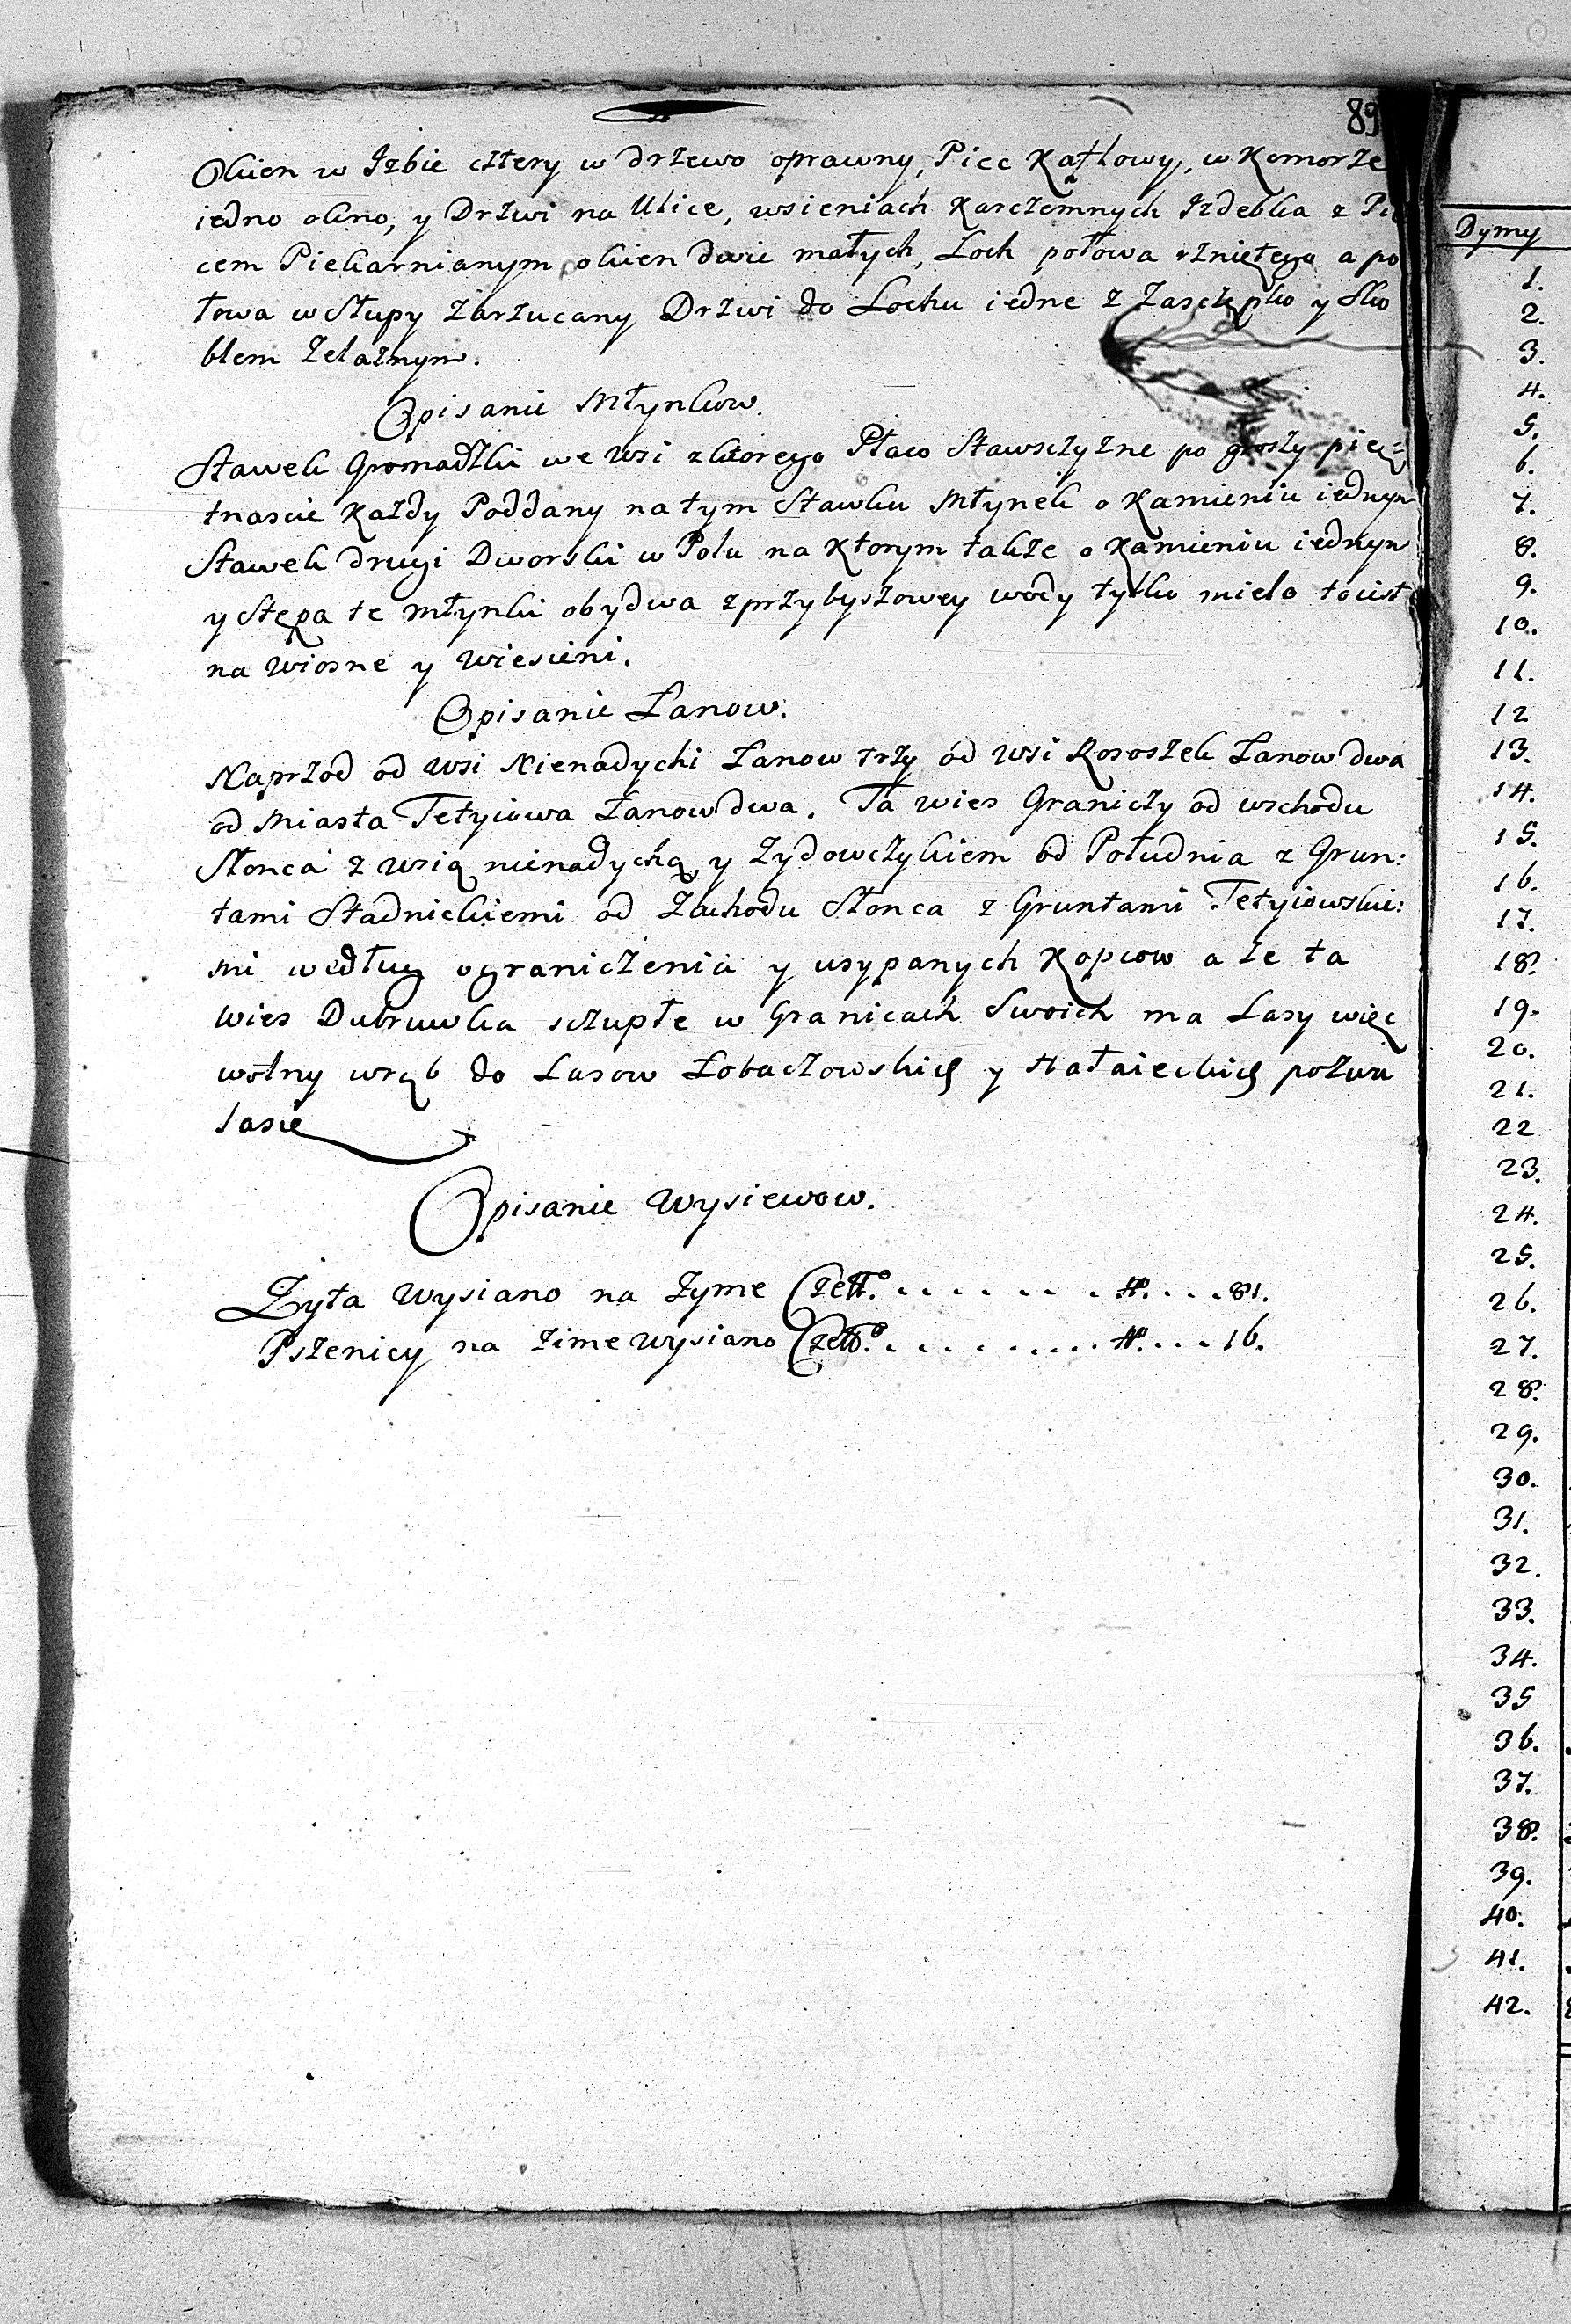 89
Okien w Izbie cztery w drzewo oprawny, Piec Kaflowy, w Komorze
iedno okno, y Drzwi na Ulice, wsieniach Karczemnych Izdebka z Pie
cem Piekarnianym, okien dwie małych, Loch połowa rzniętego a po
łowa w Słupy zarzucany Drzwi do Lochu iedne z Zasczepko y Sko
blem żelaznym.
Opisanie Młynkow.
Stawek Gromadzki we wsi zktorego Płaco Stawsczyzne po groszy pię=
tnascie Każdy Poddany na tym Stawku Młynek o Kamieniu iednym
Stawek drugi Dworski w Polu na Ktorym także o Kamieniu iednym
y Stępa te młynki obydwa zprzybyszowey wody tylko mielo toiest
na Wiosne y Wiesieni.
Opisanie Łanow.
Naprzod od Wsi Nienadychi Łanow trzy od Wsi Rososzek Łanow dwa
od Miasta Tetyiowa Łanow dwa. Ta wies Graniczy od wschodu
Słonca z wsią nienadychą, y Zydowczykiem od Południa z Grun:
tami Stadnickiemi od Zachodu Słonca z Gruntami Tetyiowskie:
mi według ograniczenia y usypanych Kopcow a że ta
Wies Dubruwka sczupłe w Granicach Swoich ma Lasy więc
wolny wrąb do Lasow Łobaczowskich y Hałaieckich pozwa
lasie
Opisanie Wysiewow.
Żyta Wysiano na Zyme Czett. . . . . . . . . № . . . 81.
Pszenicy na zime Wysiano Czett. . . . . . . . . № . . . 16.
Dymy
1.
2.
3.
4.
5.
6.
7.
8.
9.
10.
11.
12
13.
14.
15.
16.
17.
18.
19.
20.
21.
22
23.
24.
25.
26.
27.
28.
29.
30.
31.
32.
33.
34.
35
36.
37.
38.
39.
40.
41.
42.